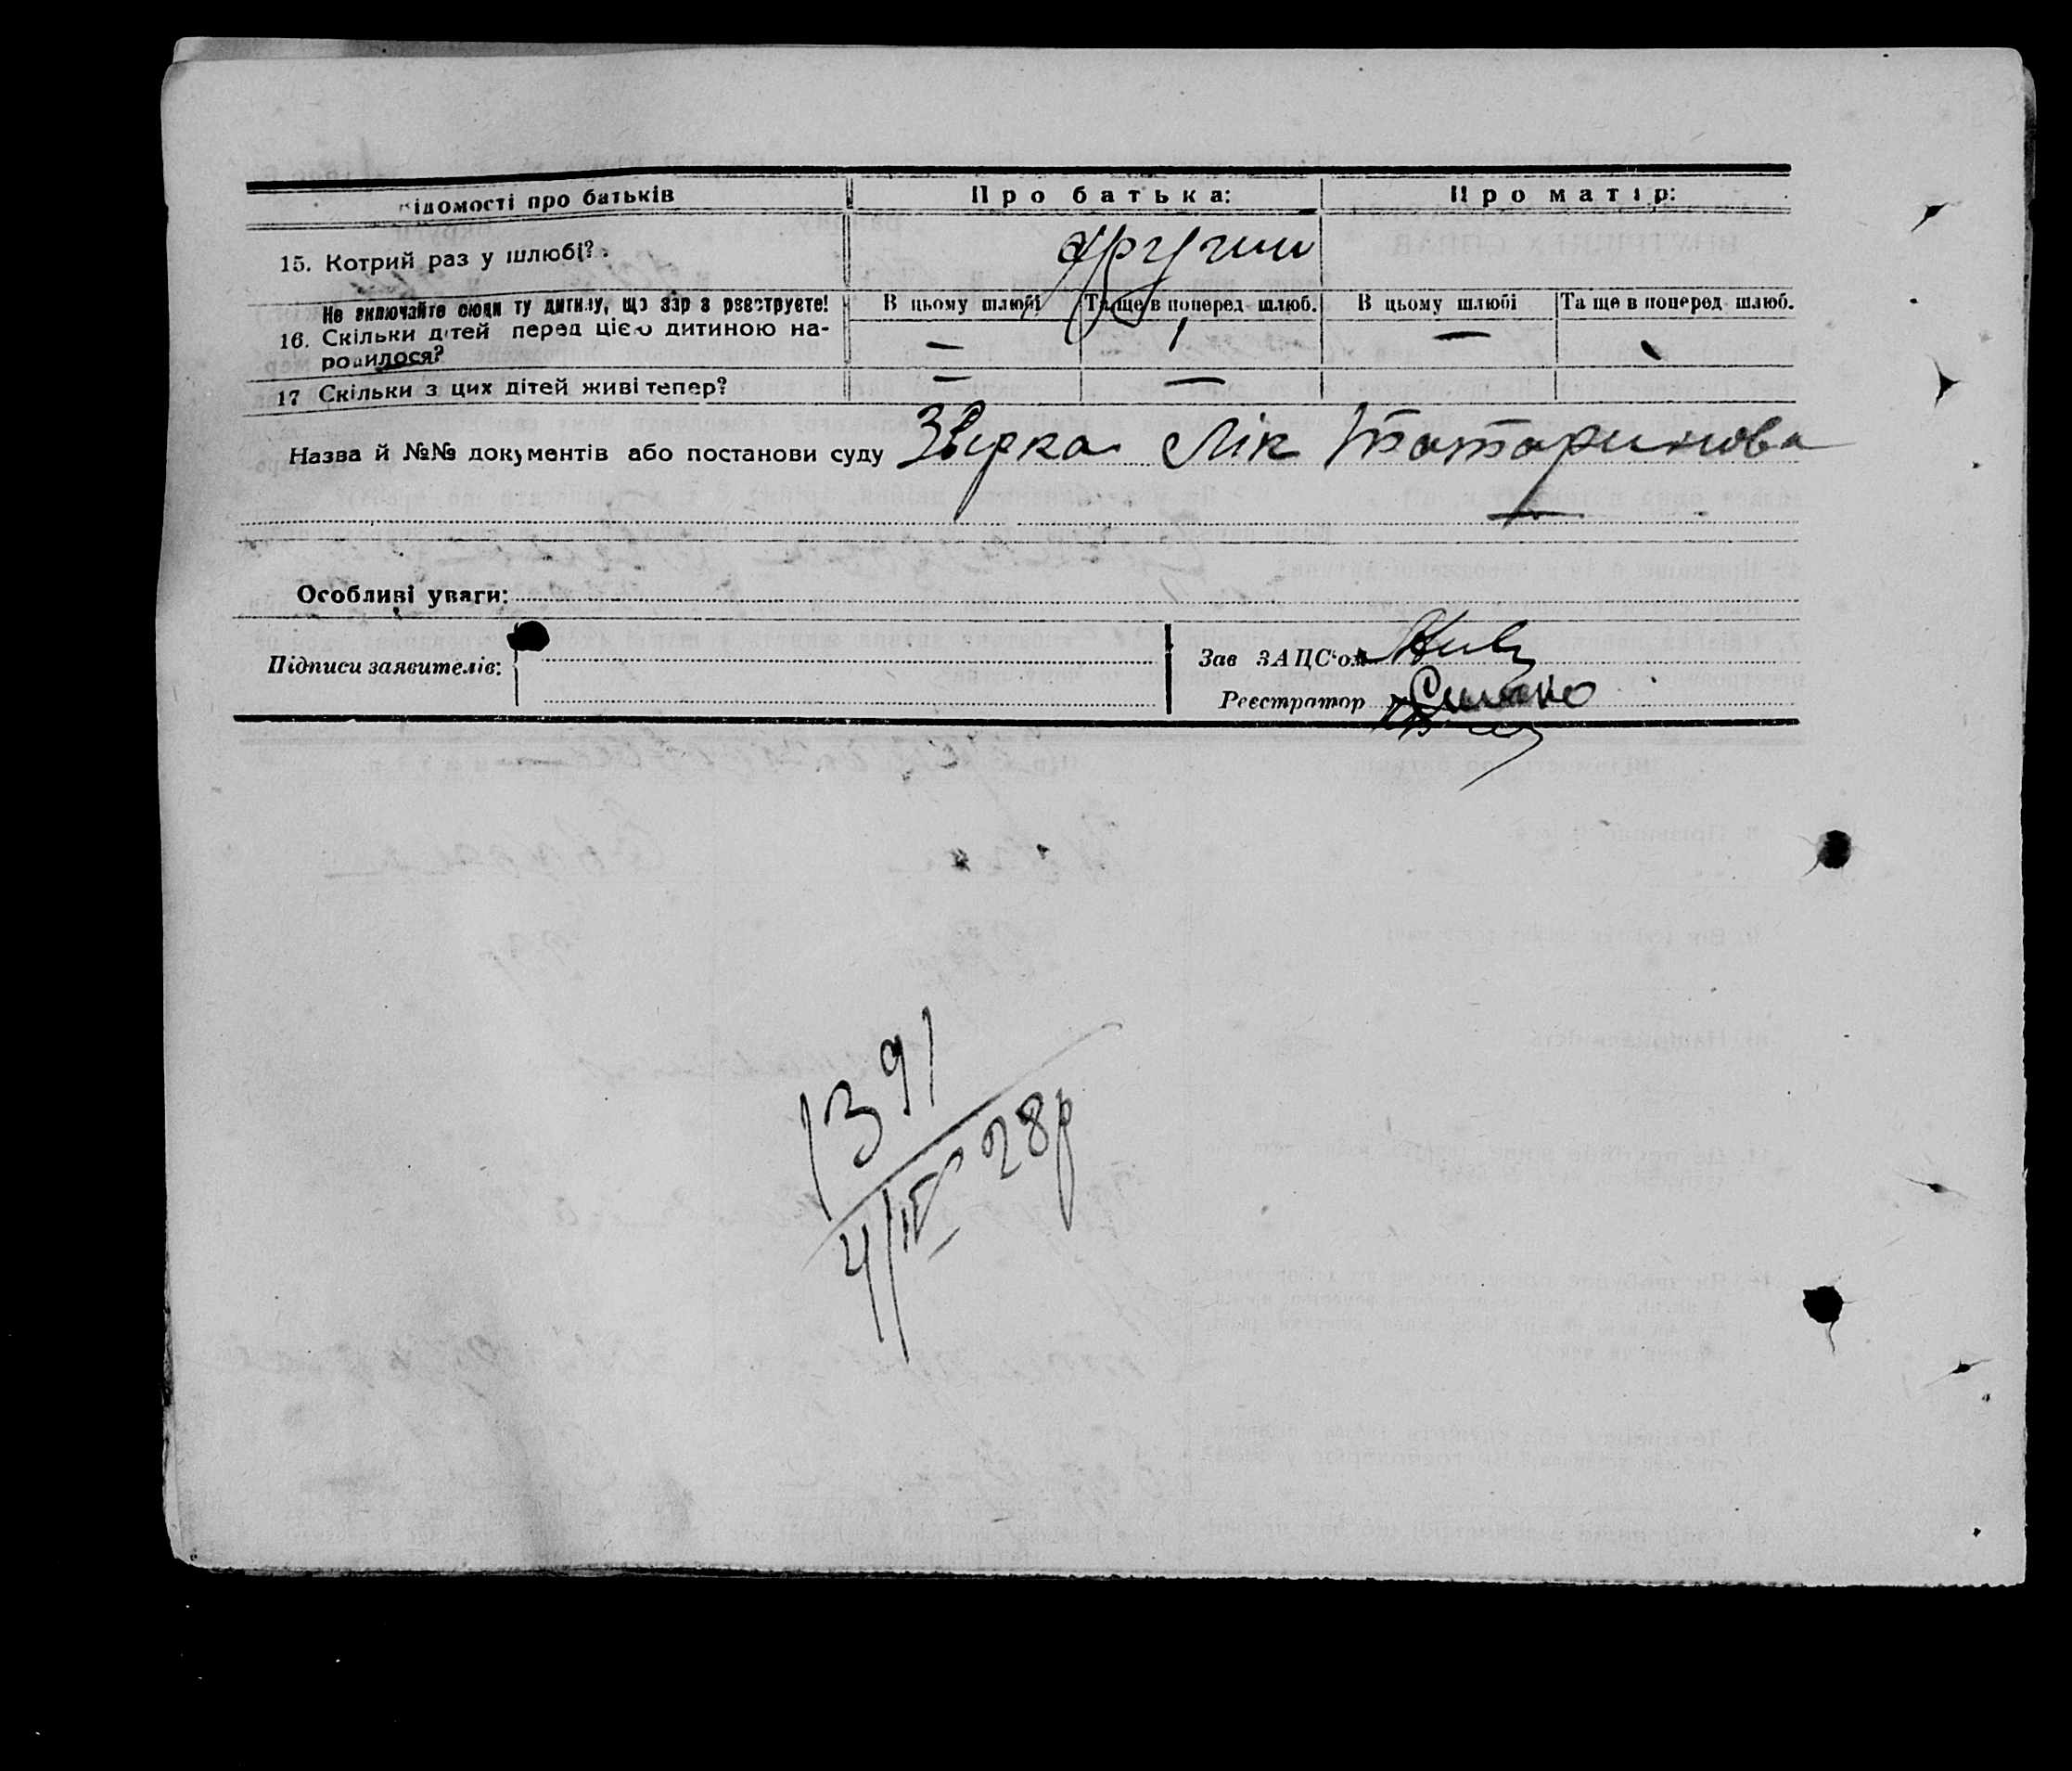 Відомості про батьків Про батька: Про матір:
15. Котрий раз у шлюбі? другий
Не включайте сюди ту дитину, що зараз реєструєте! В цьому шлюбі Та ще в поперед шлюб. В цьому шлюбі Та ще в поперед шлюб.
16. Скільки дітей перед цією дитиною на-
родилося? — 1 —
17 Скільки з цих дітей живі тепер? — —
Назва й №№ документів або постанови суду Звірка Лік Татаринова
Особливі уваги:
Підписи заявителів: Зав ЗАЦС'ом
Реєстратор
1391
4/IV 28р